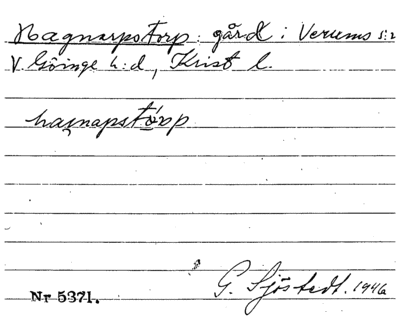 Hagnarpstorp: gård i Verums s:n
V. Göinge h:d, Krist l.
hagnapstórp
G. Sjöstedt. 1946
Nr 5371.